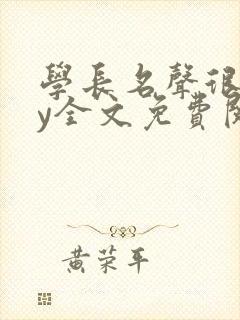 學長名聲很
y全文免費閱
黃荣平